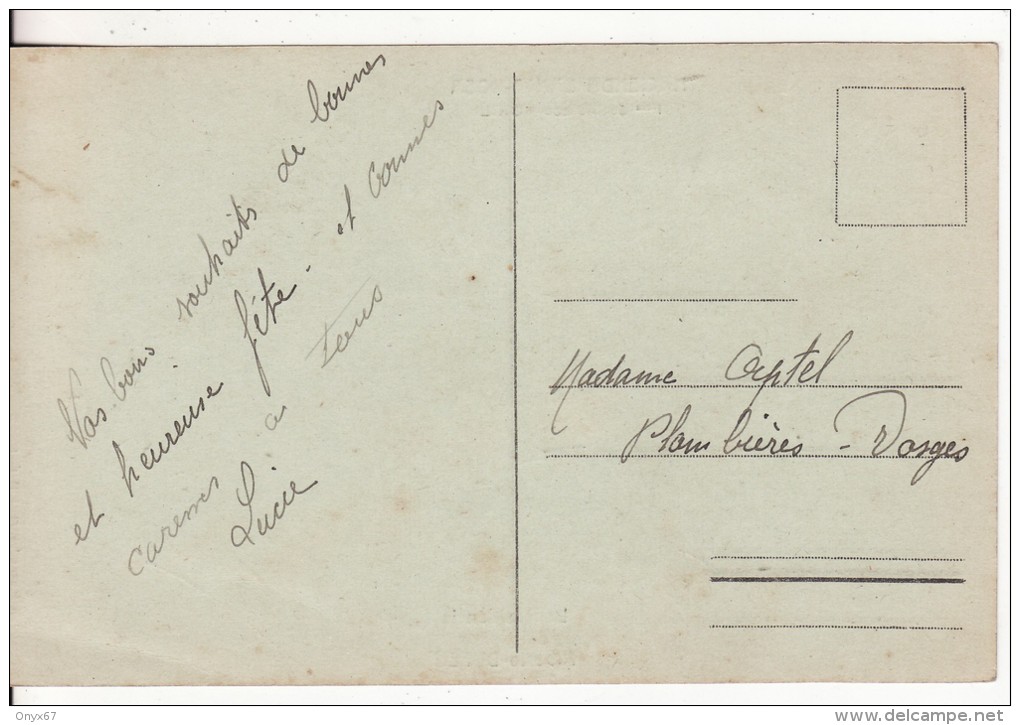 Nos bons souhaits de bonnes
et heureuse fête - et bonnes
caresses a tous
Lucie
Madame Aptel
Plombières - Vosges
Onyx67
www.delcampe.net